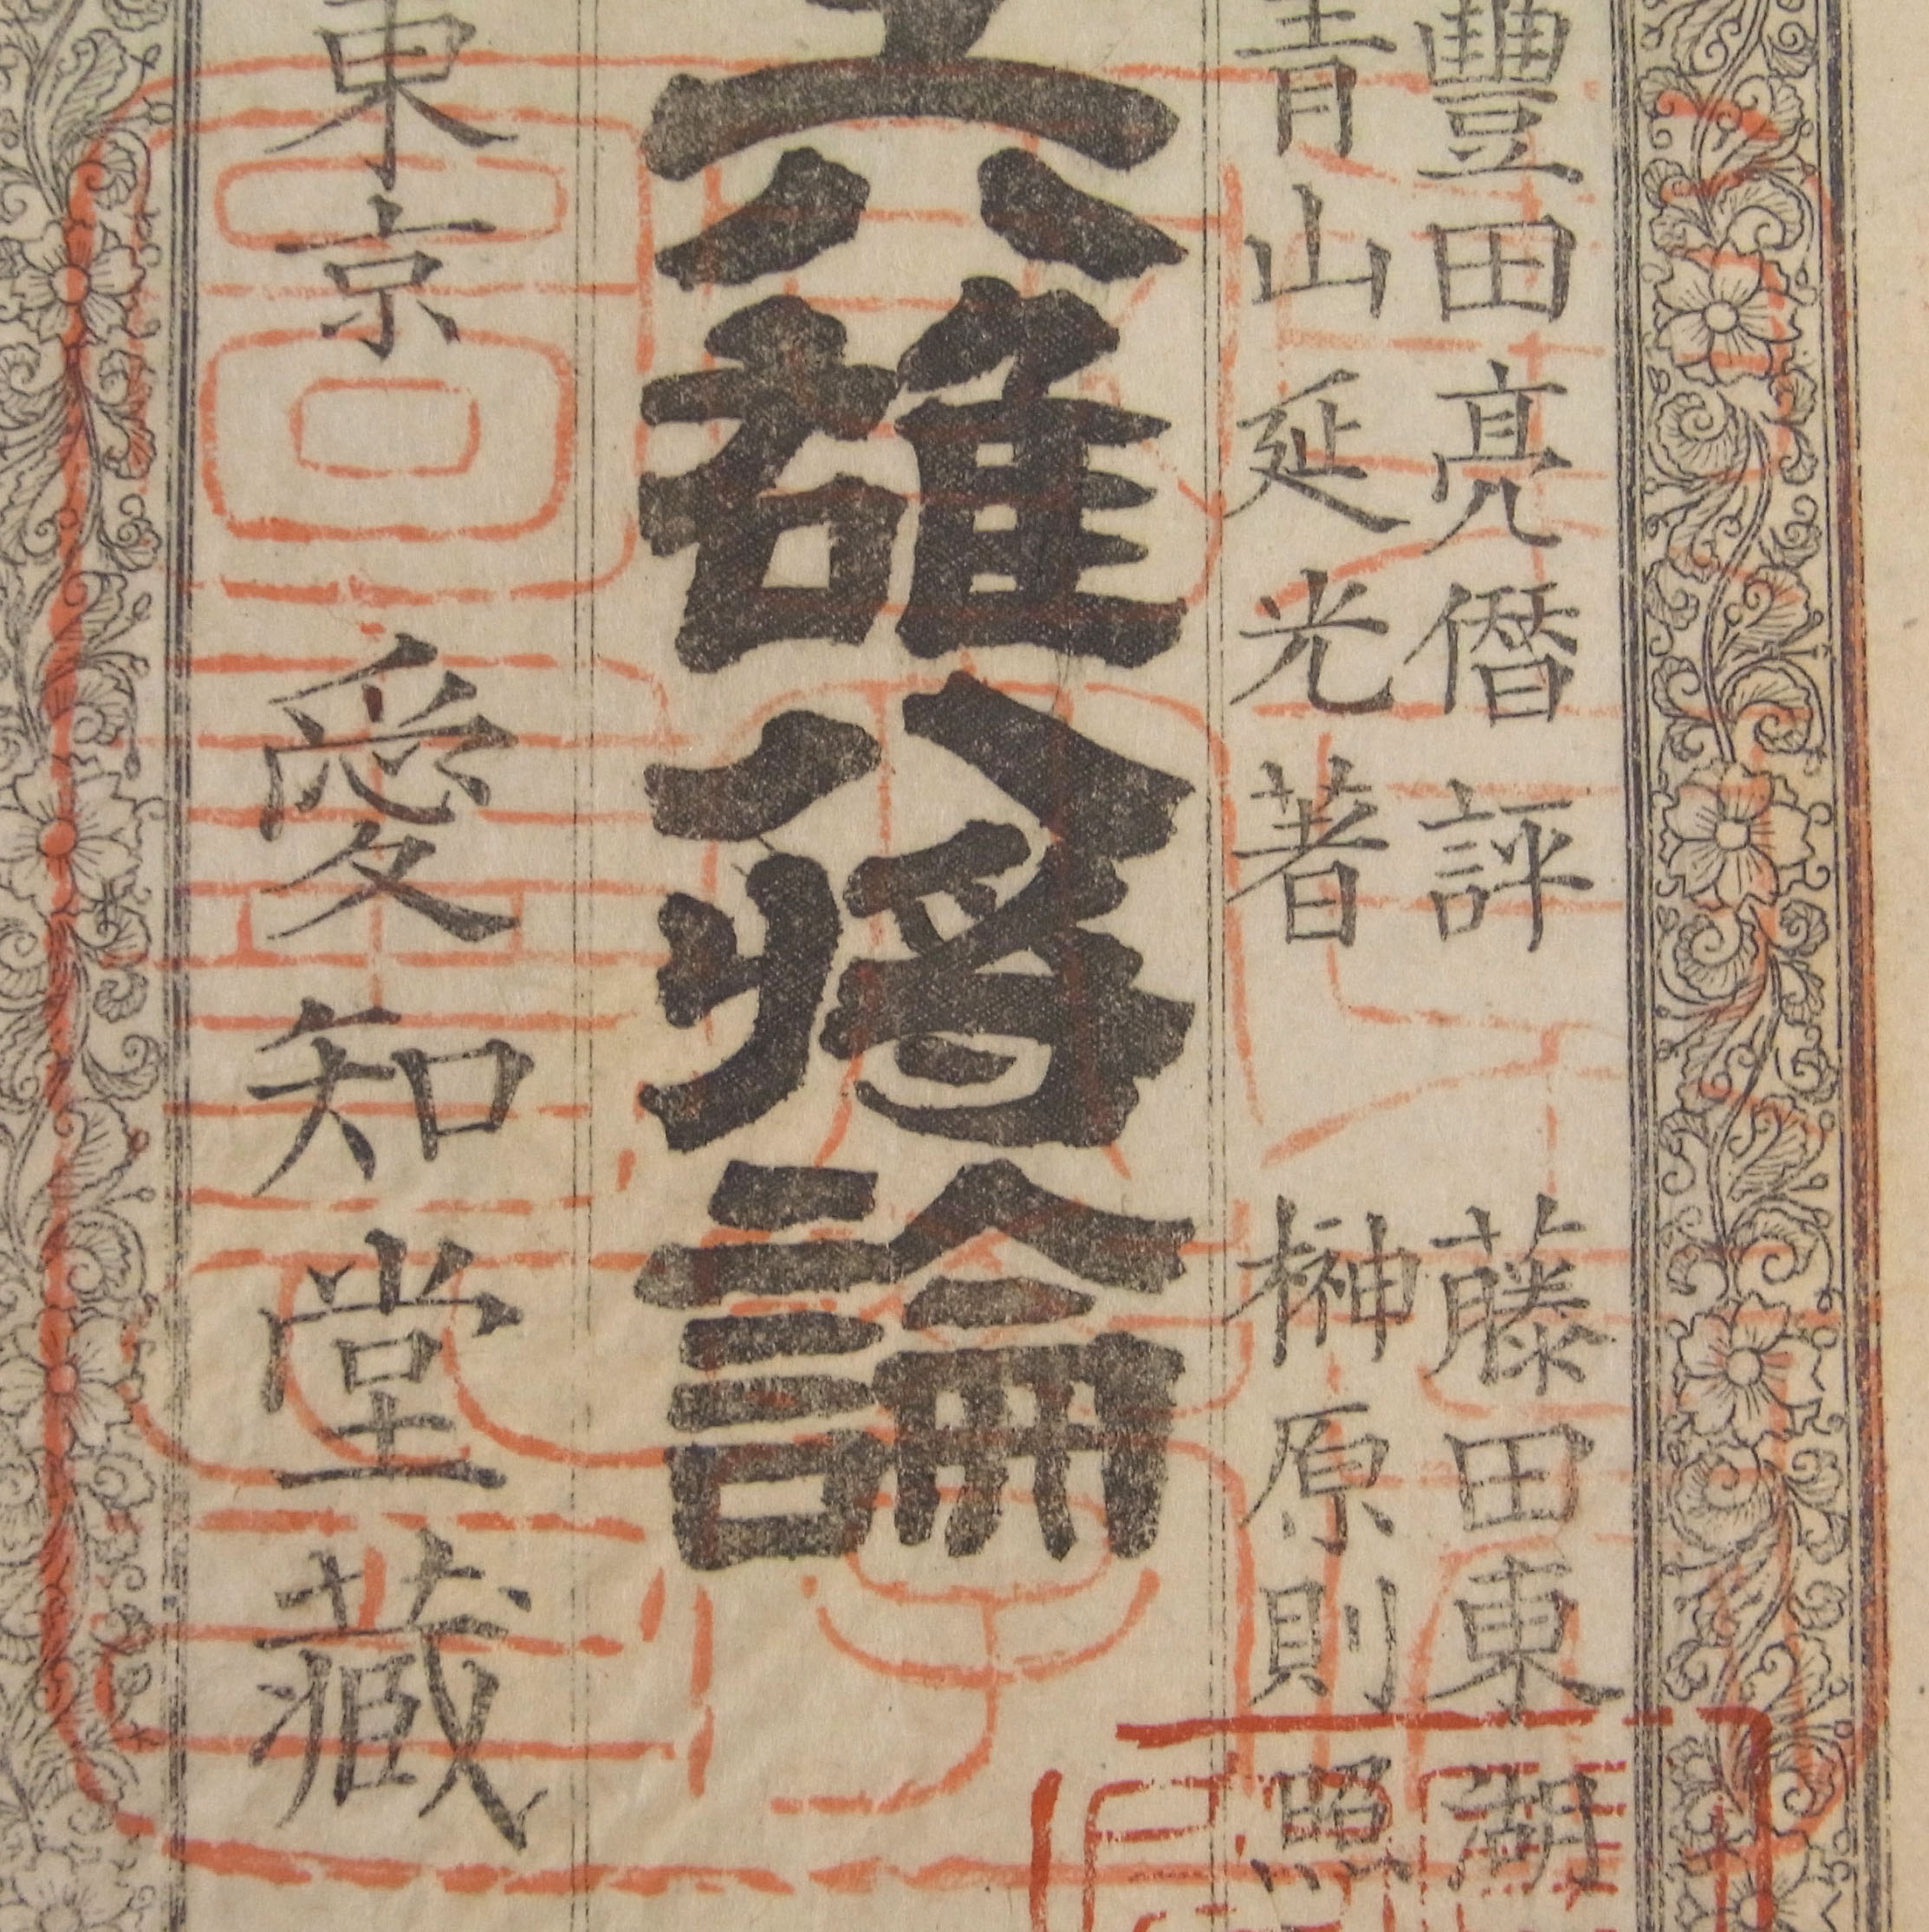 豐田亮僭評 藤田東湖
青山延光著 榊原則照
六雄八將論
東京 愛知堂藏